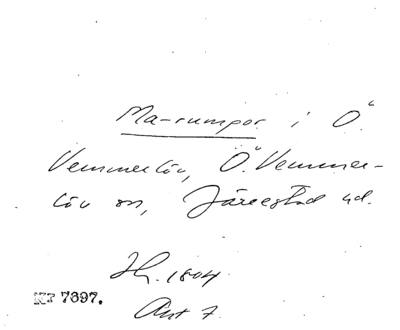 Ma-rumpor i Ö.
Vemmerlöv, Ö. Vemmer-
löv sn, Järrestad hd.
Jh. 1804
Akt 7
KF 7897.